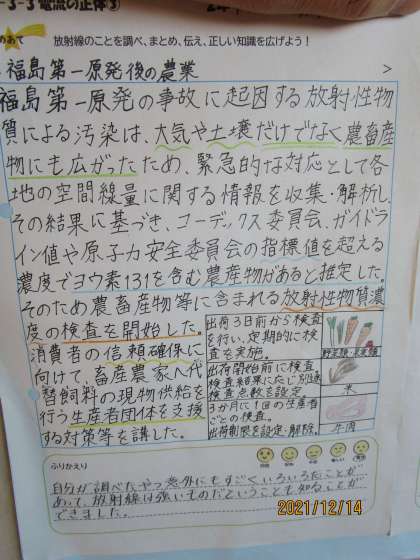 3-3 電流の正体③
めあて 放射線のことを調べ、まとめ、伝え、正しい知識を広げよう！
福島第一原発後の農業 >
福島第一原発の事故に起因する放射性物
質による汚染は、大気や土壌だけでなく農畜産
物にも広がったため、緊急的な対応として各
地の空間線量に関する情報を収集・解析し、
その結果に基づき、コーデックス委員会、ガイドラ
イン値や原子力安全委員会の指標値を超える
濃度でヨウ素131を含む農産物があると推定した。
そのため農畜産物等に含まれる放射性物質濃
度の検査を開始した。
消費者の信頼確保に
向けて、畜産農家へ代
替飼料の現物供給を
行う生産者団体を支援
する対策等を講した。
出荷3日前から検査
を行い、定期的に検
査を実施。
野菜類・果実類
出荷開始前に検査。
検査結果に応じ別途
検査点数を設定
米
3か月に1回の生産者
ごとの検査。
出荷制限を設定・解除。
牛肉
ふりかえり
自分が調べたやつ意外にもすごくいろいろたことが
あって、放射線は強いものだということも知ることが
できました。
2021/12/14